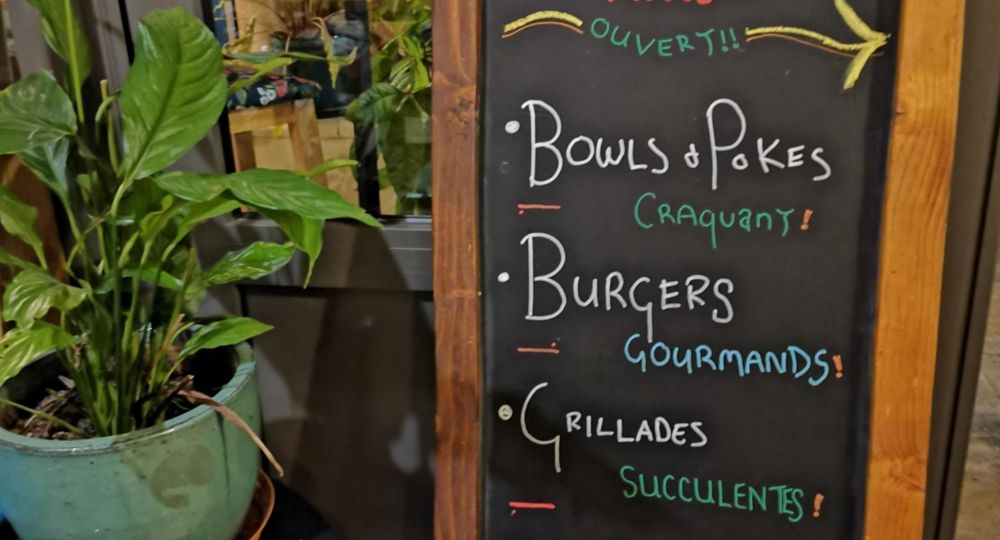 OUVERT!!
• BOWLS & POKES
CRAQUANT!
• BURGERS
GOURMANDS!
• GRILLADES
SUCCULENTES!